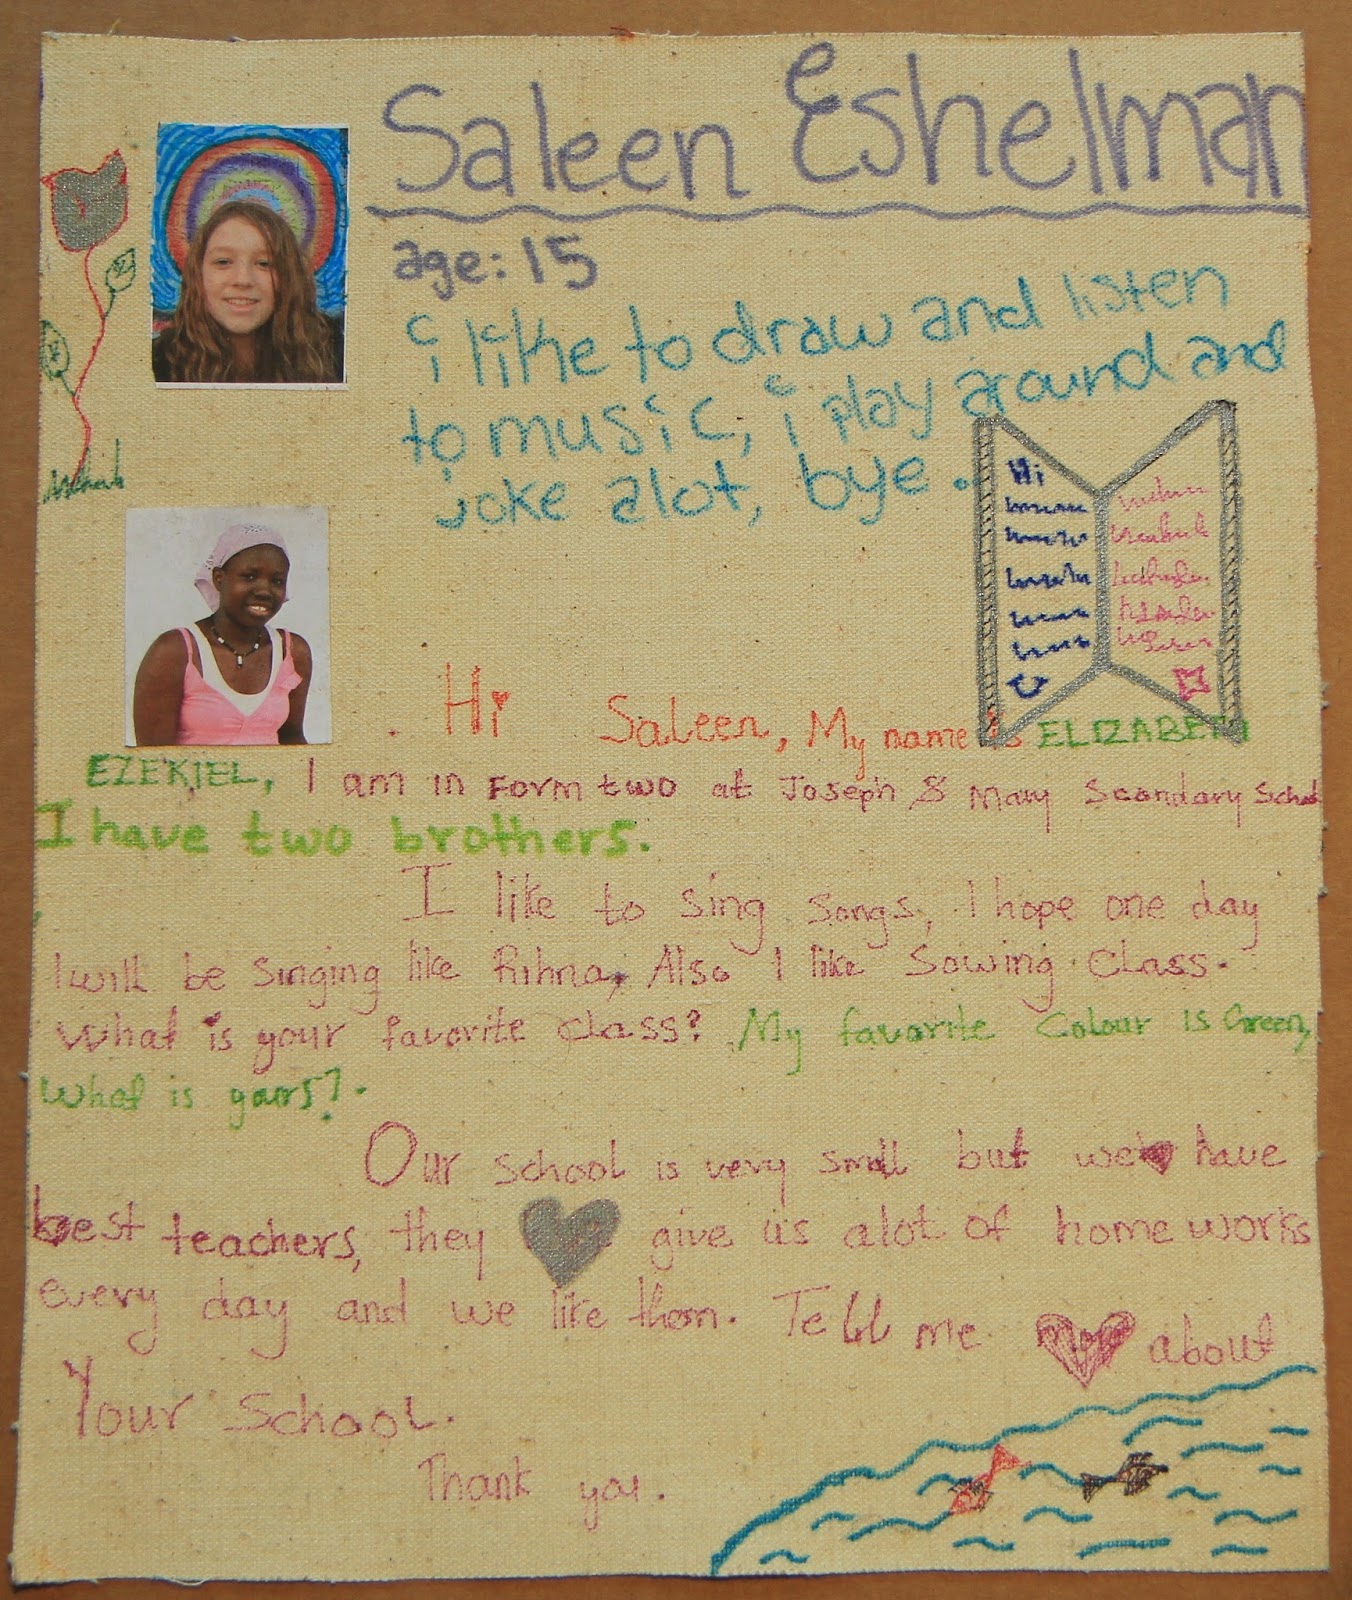 Saleen Eshelman
age: 15
i like to draw and listen
to music, i play around and
joke alot, bye.
Hi
Hi Saleen, My name is ELIZABETH
EZEKIEL, I am in Form two at Joseph & Mary Scondary School
I have two brothers.
I like to sing songs, I hope one day
I will be singing like Rihna, Also I like Sowing Class.
What is your favorite class? My favorite Colour is Green,
What is yours?.
Our school is very small but we have
best teachers, they give us alot of home works
every day and we like them. Tell me more about
Your School.
Thank you.